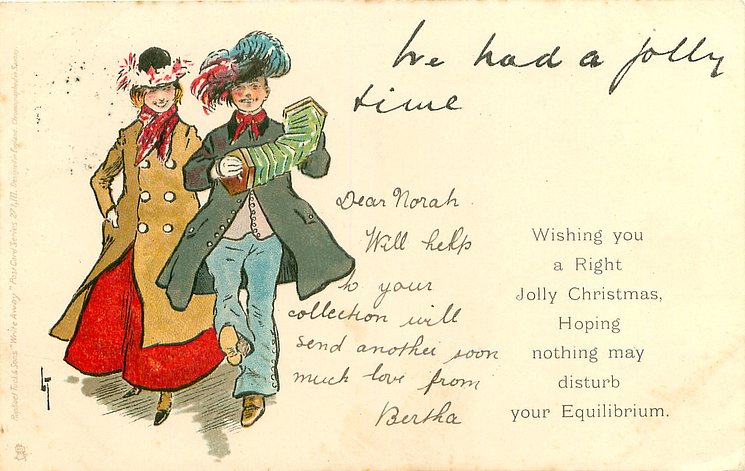 We had a jolly
time
Dear Norah.
Will help
to your
collection will
send another soon
much love from
Bertha
Wishing you
a Right
Jolly Christmas,
Hoping
nothing may
disturb
your Equilibrium.
Raphael Tuck & Sons' "Write Away" Post Card Series, 271, III. Designed in England. Chromographed in Saxony.